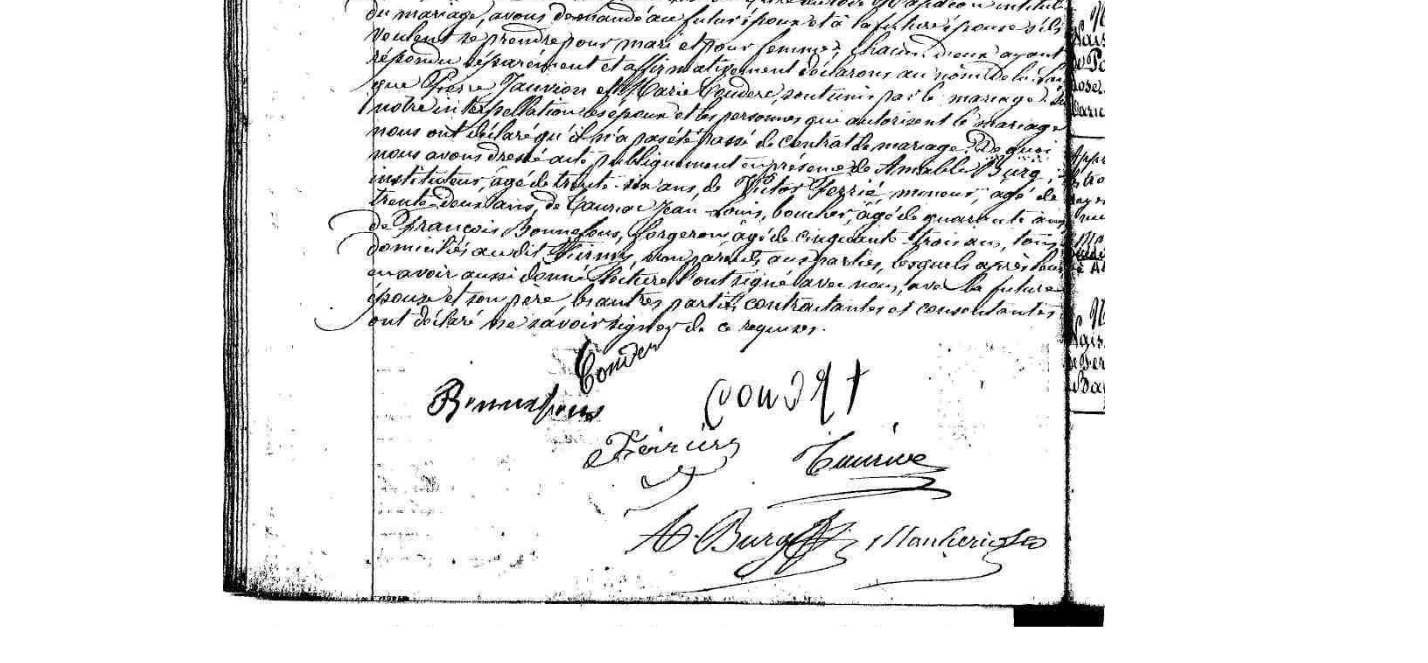 du mariage, avons demandé au futur époux et à la future épouse s'ils
veulent se prendre pour mari et pour femme, chacun d'eux ayant
répondu séparément et affirmativement déclarons au nom de la loi
que Pierre Jauvion et Marie Couderc, sont unis par le mariage. Sur
notre interpellation les époux et les personnes qui autorisent le mariage
nous ont déclaré qu'il n'a pas été passé de contrat de mariage. De quoi
nous avons dressé acte publiquement en présence de Amable Burg,
instituteur, âgé de trente-six ans, de Victor Ferrié mineur, âgé de
trente-deux ans, de Cauriac Jean-Louis, boucher, âgé de quarante ans,
de François Bonnefous, forgeron, âgé de cinquante trois ans, tous
domiciliés au dit Firmy, non parents aux parties, lesquels après leur
en avoir aussi donné lecture l'ont signé avec nous, avec la future
épouse et son père les autres parties contractantes et consentantes
ont déclaré ne savoir signer de ce requises.
Couderc
Bonnefous
A. Burg